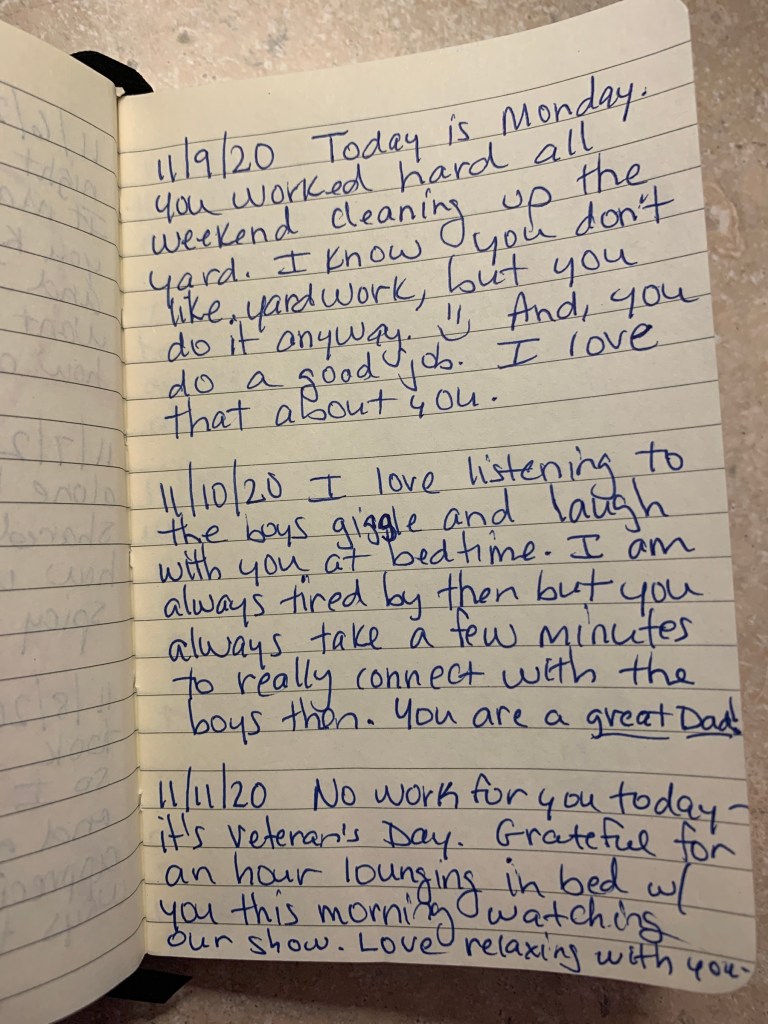 11/9/20 Today is Monday.
you worked hard all
weekend cleaning up the
yard. I know you don't
like yardwork, but you
do it anyway. And, you
do a good job. I love
that about you.
11/10/20 I love listening to
the boys giggle and laugh
with you at bedtime. I am
always tired by then but you
always take a few minutes
to really connect with the
boys then. You are a great Dad!
11/11/20 No work for you today-
it's Veteran's Day. Grateful for
an hour lounging in bed w/
you this morning watching
our show. Love relaxing with you.